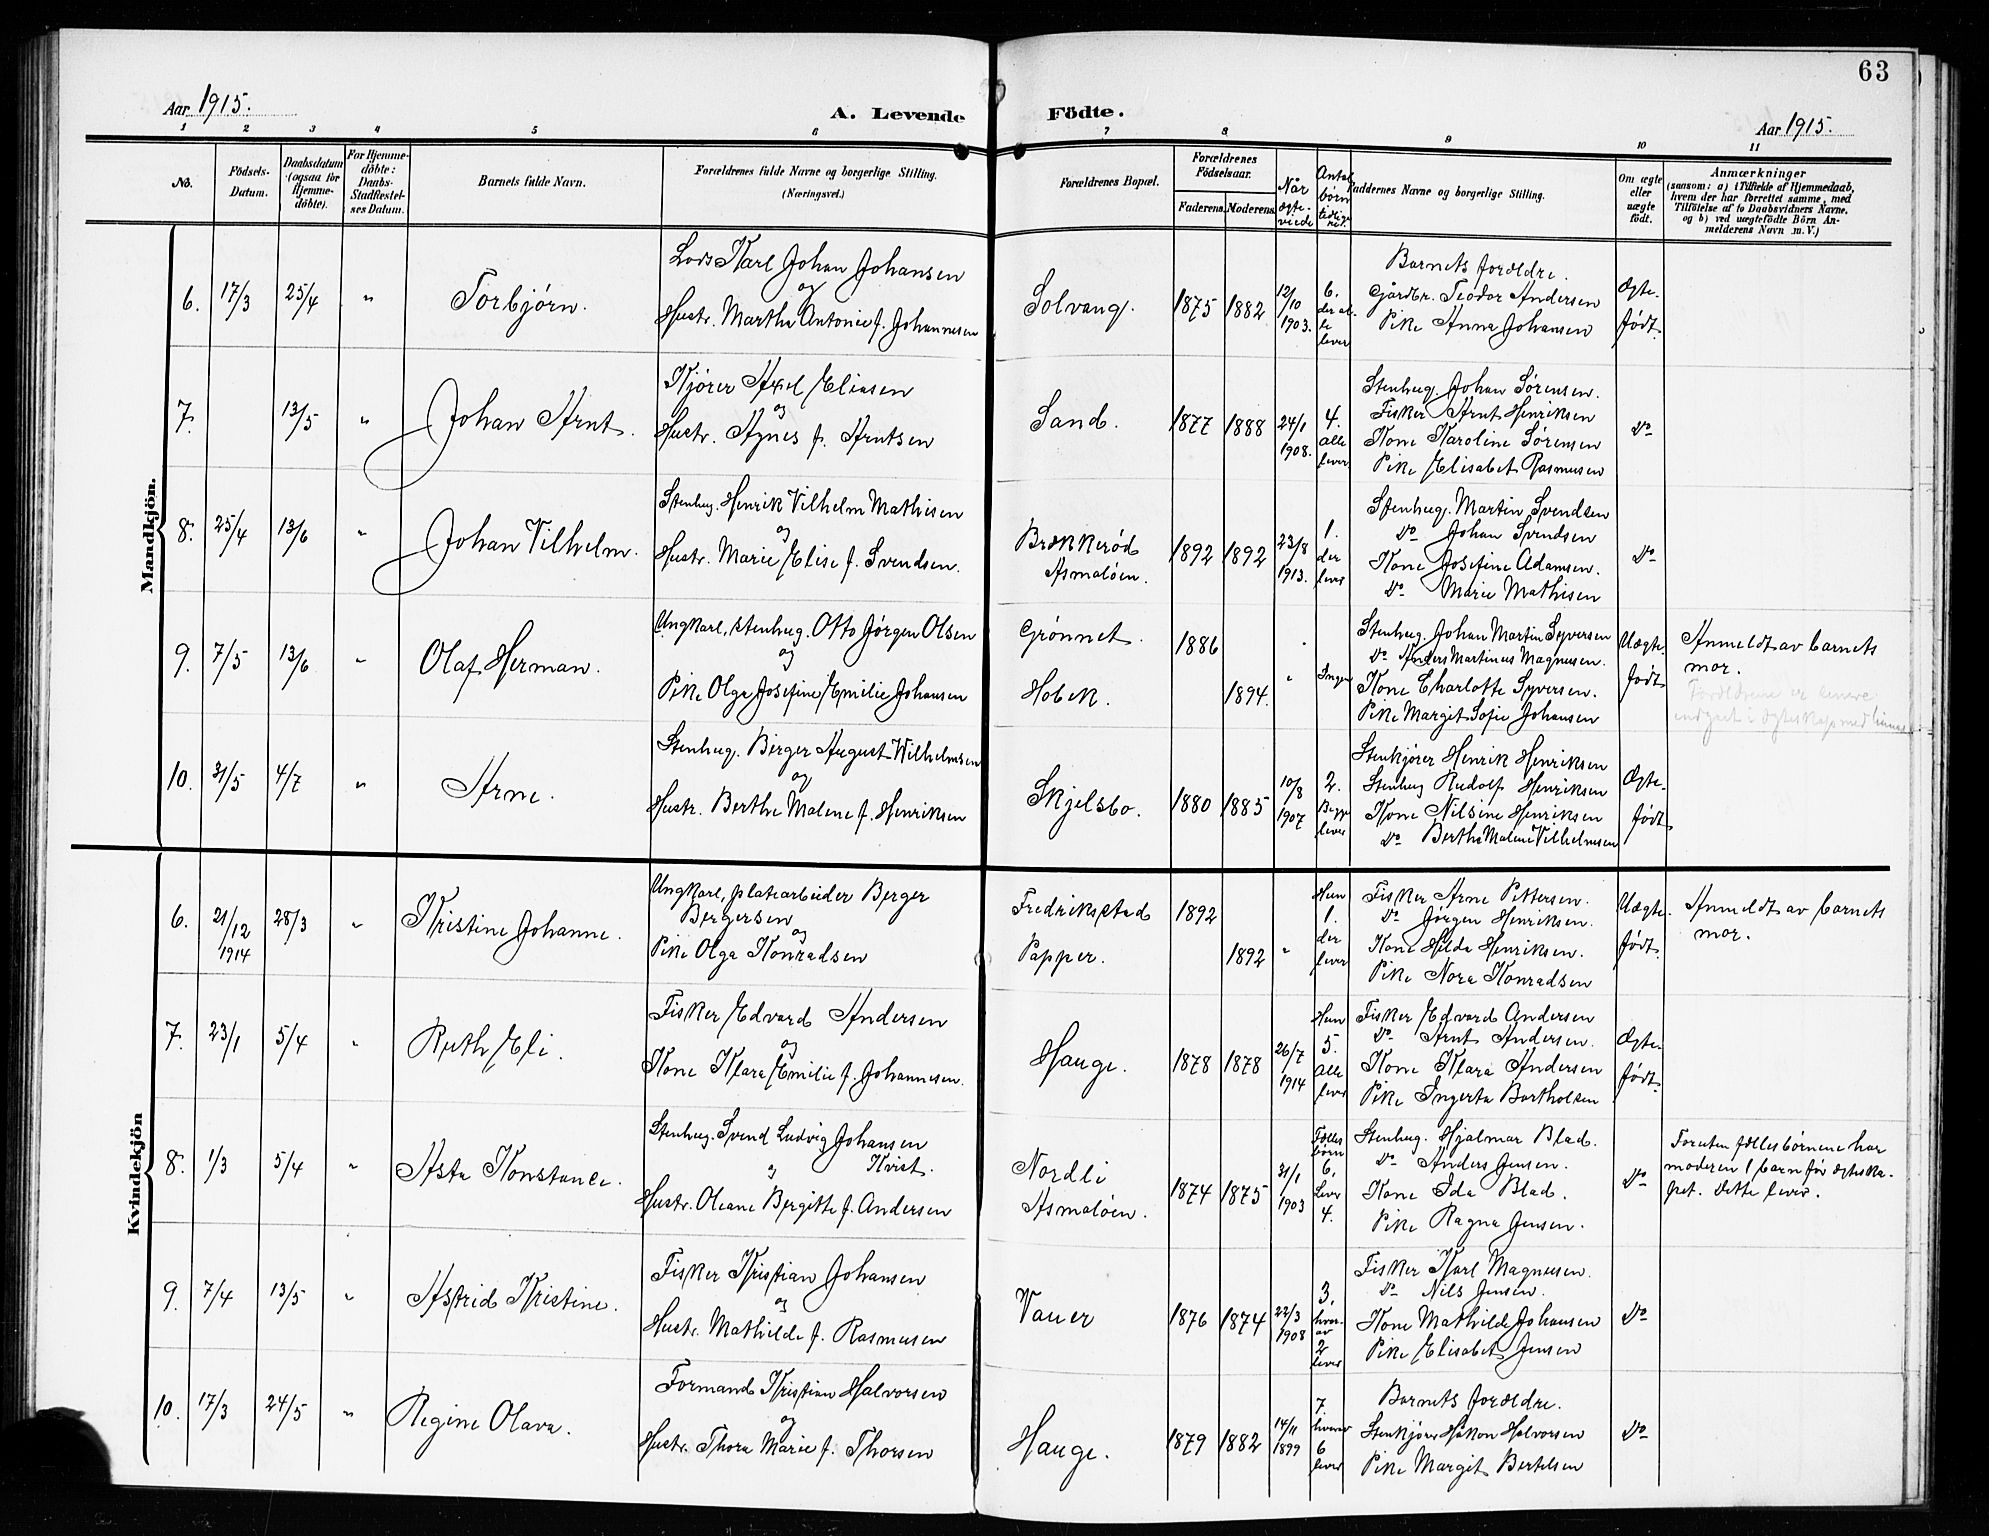 63
Aar 1915.
A. Levende Födte.
Aar 1915.
1 2 3 4 5 6 7 8 9 10 11
No.
Födsels-
Datum.
Daabsdatum
(ogsaa for
Hjemme-
döbte).
For Hjemme-
döbte:
Daabs-
Stadfæstel-
ses Datum.
Barnets fulde Navn.
Forældrenes fulde Navne og borgerlige Stilling.
(Næringsvei.)
Forældrenes Bopæl.
Forældrenes
Födselsaar.
Faderens.
Moderens.
Når
ægte-
viede
Antal
børn
tidlige-
re.
Faddernes Navne og borgerlige Stilling.
Om ægte
eller
uægte
födt.
Anmærkninger
(saasom: a) i Tilfælde af Hjemmedaab,
hvem der har forrettet samme, med
Tilföielse af to Daabsvidners Navne.
og b) ved uægtefödte Börn An-
melderens Navn m. V.)
Mandkjön.
6. 17/3 25/4 " Torbjørn.
Lods Karl Johan Johansen
og
Hustr. Martha Antonie f. Johannesen
Solvang. 1875 1882
12/10
1903.
6.
der al-
le
lever
Barnets forældre.
Gårdbr. Teodor Andersen
Pike Anna Johansen
Ægte-
født.
7. 13/5 " Johan Arnt.
Kjører Axel Eliasen
og
Hustr. Agnes f. Arntsen
Sand. 1877 1888
24/1
1908.
4.
alle
lever
Stenhug. Johan Sørensen.
Fisker Arnt Henriksen
Kone Karoline Sørensen
Pike Elisabet Rasmusen
Do
8. 25/4 13/6 " Johan Vilhelm.
Stenhug. Henrik Vilhelm Mathisen
og
Hustr. Marie Elise f. Svendsen.
Brækkerød
Asmaløen.
1892 1892
23/8
1913.
1.
der
lever
Stenhug. Martin Svendsen
Do Johan Svendsen
Kone Josefine Adamsen.
Do Marie Mathisen
Do
9. 7/5 13/6 " Olaf Herman.
Ungkarl, stenhug. Otto Jørgen Olsen
og
Pike Olga Josefine Emilie Johansen
Grønnet. 1886
Hobek. 1894. "
Ingen
Stenhug. Johan Martin Syversen
Do Anders Martinus Magnusen.
Kone Charlotte Syversen.
Pike Margit Sofie Johansen
Uægte-
født
Anmeldt av barnets
mor.
Forældrene er senere
indgået i ægteskap med
10. 31/5 4/7 " Arne.
Stenhug. Birger August Wilhelmsen
og
Hustr. Berthe Malene f. Henriksen
Skjelsbo. 1880 1885
10/8
1907
2.
Begge
lever
Stenkjører Henrik Henriksen
Stenhug Rudolf Henriksen
Kone Nilsine Henriksen
Do Berthe Malene Vilhelmsen
Ægte-
født
Kvindekjön
6.
21/12
1914
28/3 " Kristine Johanne.
Ungkarl, platearbeider Berger
Bergersen
og
Pike Olga Konradsen
Fredriksstad 1892
Papper. 1892 "
Hun
1.
der
lever
Fisker Arne Pettersen.
Do Jørgen Henriksen.
Kone Hilda Henriksen.
Pike Nora Konradsen
Uægte-
født.
Anmeldt av barnets
mor.
7. 23/1 5/4 " Ruth Eli.
Fisker Edvard Andersen
og
Kone Klara Emilie f. Johannesen.
Hauge. 1878 1878
26/7
1914
Hun
5.
alle
lever
Fisker Edvard Andersen
Do Arnt Andersen.
Kone Klara Andersen
Pike Ingerta Bartholsen
Ægte-
født.
8. 1/3 5/4 " Asta Konstance.
Stenhug. Svend Ludvig Johansen
og Kvist.
Hustr. Oleane Bergitte f. Andersen
Nordli
Asmaløen.
1874 1875
31/1
1903
Fælles
børn
6.
Lever
4.
Stenhug. Hjalmar Blad.
Do Anders Jensen.
Kone Ida Blad.
Pike Ragna Jensen.
Do
Foruten fællesbørnene har
moderen 1 barn før ægteska-
pet. Dette lever.
9. 7/4 13/5 " Astrid Kristine.
Fisker Kristian Johansen
og
Hustr. Mathilde f. Rasmusen
Vauer 1876 1874
22/3
1908
3,
hvor-
av
2
lever
Fisker Karl Magnusen.
Do Nils Jensen.
Kone Mathilde Johansen
Pike Elisabet Jensen
Do
10. 17/3 24/5 " Regine Olava.
Formand Kristian Halvorsen
og
Hustr. Thora Marie f. Thorsen
Hauge. 1879 1882
14/11
1899
7.
hvorav
6
lever
Barnets forældre.
Stenkjører Håkon Halvorsen
Pike Margit Bertelsen
Do